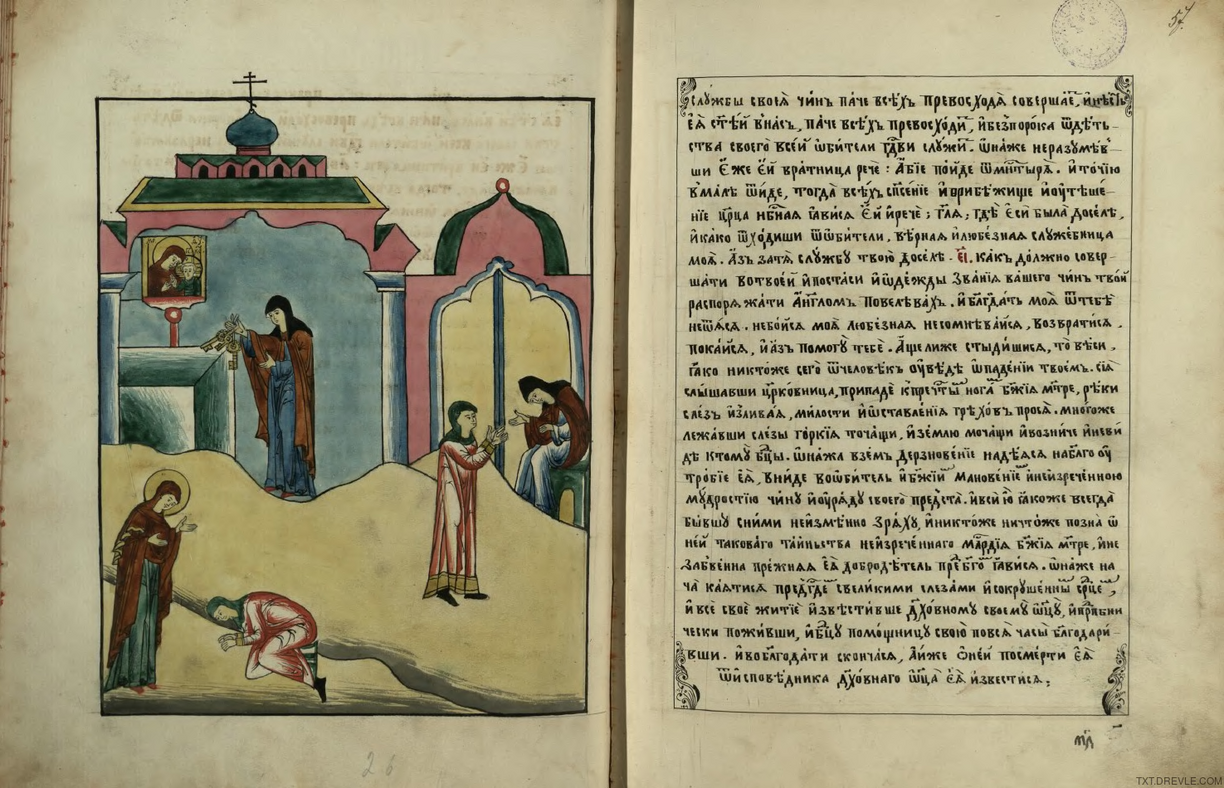 службы своеѧ̀ чи́нъ па́че всѣ́хъ превосходѧ̀ соверша́е,
еѧ̀ ст҃е́й в на́съ, па́че всѣ́хъ превосхо́ди, и҆ без̾ поро́ка ѿ дѣ́ть-
ства своего̀ все́й ѻ҆би́тели гдⷭ҇ви служи̑. ѡ҆на́же неразумѣ́в-
ши є҆́же є҆́й вра́тница речѐ: а҆́бїе по́йде ѿ мⷪ҇нтырѧ̀. и҆ то́чїю
в ма́лѣ ѿи́де, тогда̀ всѣ́хъ сп҃се́нїе и҆ прибѣ́жище и҆ ᲂу҆тѣше-
нїе цр҃ца нбⷭ҇наѧ ꙗ҆ви́сѧ є҆́й и҆ речѐ: гл҃ѧ; гдѣ̀ є҆сѝ была̀ досе́лѣ,
и҆ ка́ко ѿхо́диши ѿ ѻ҆би́тели, вѣ́рнаѧ и҆ любе́знаѧ слꙋже́бница
моѧ̀. а҆́зъ за тѧ̀ слꙋ́жбꙋ твою̀ досе́лѣ. є҃і. ка́къ до́лжно совер-
ша́ти во твое́й и҆поста́си и҆ ѻ҆де́жды зва́нїѧ ва́шего чи́нъ тво́й
распорѧжа́ти а҆́нг҃ломъ повелѣва́хъ. и҆ блгⷣть моѧ̀ ѿ тебѐ
не ѿѧ́сѧ. не бо́йсѧ моѧ̀ любе́знаѧ не сомнѣва́йсѧ, возврати́сѧ,
пока́йсѧ, и҆ а҆́зъ помогꙋ̀ тебѐ. а҆́ще ли же стыди́шисѧ, то вѣ́си,
ꙗ҆́ко никто́же сегѡ̀ ѿ человѣ́къ ᲂу҆вѣ́дѣ ѡ҆ паде́нїи твое́мъ. сїѧ̑
слы́шавши цр҃ко́вница, припадѐ к пречⷭ҇ты̑ нога́ бж҃їѧ мт҃ре, рѣ́ки
сле́зъ и҆злива́ѧ, ми́лости и҆ ѡ҆ставле́нїѧ грѣхо́въ просѧ̀. мно́гоже
лежа́вши сле́зы го́ркїѧ точа́щи, и҆ зе́млю моча́щи и҆ возни́че и҆ не ви́-
дѣ к томꙋ̀ бц҃ы. ѡ҆на́жа взе́мъ дерзнове́нїе надѣ́ѧсѧ на бл҃го ᲂу҆-
тро́бїе еѧ̀, вни́де во ѻ҆би́тель и҆ бж҃їи̑ манове́нїе̑ и҆ неизрече́нною
мꙋ́дростїю чи́нꙋ и҆ ᲂу҆рѧ́дꙋ своего̀ предста̀. и҆ всѝ ю҆̀ ꙗ҆́коже всегда̀
бы́вшꙋ с ни́ми неизмѣ́нно зрѧ́хꙋ, и҆ никто́же ничто́же позна̀ ѡ҆
не́й такова́го та́иньства неизрече́ннаго млⷭ҇рдїѧ бж҃їѧ мт҃ре, и҆ не
забве́нна пре́жнѧѧ еѧ̀ доброде́тель пре бг҃о̑ ꙗ҆ви́сѧ. ѡ҆на́же на-
ча̀ ка́ѧтисѧ пред̾ гдⷭ҇е̑ с вели́кими слеза́ми и҆ сокрꙋше́нны̑ срⷣце̑,
и҆ всѐ своѐ житїѐ и҆звѣсти́вше дх҃о́вномꙋ своемꙋ̀ ѻ҆ц҃ꙋ̀, и҆ прпⷣбни-
чески пожи́вши, и҆ бц҃ꙋ помо́щницꙋ свою̀ по всѧ̀ часы̀ бл҃годари́-
вши. и҆ во блгода́ти сконча́сѧ, а҆́ иже ѻ҆ не́й по сме́рти еѧ̀
ѿ и҆спове́дника дх҃о́внаго ѻ҆ц҃а̀ еѧ̀ и҆звести́сѧ:
26
TXT.DREVLE.COM